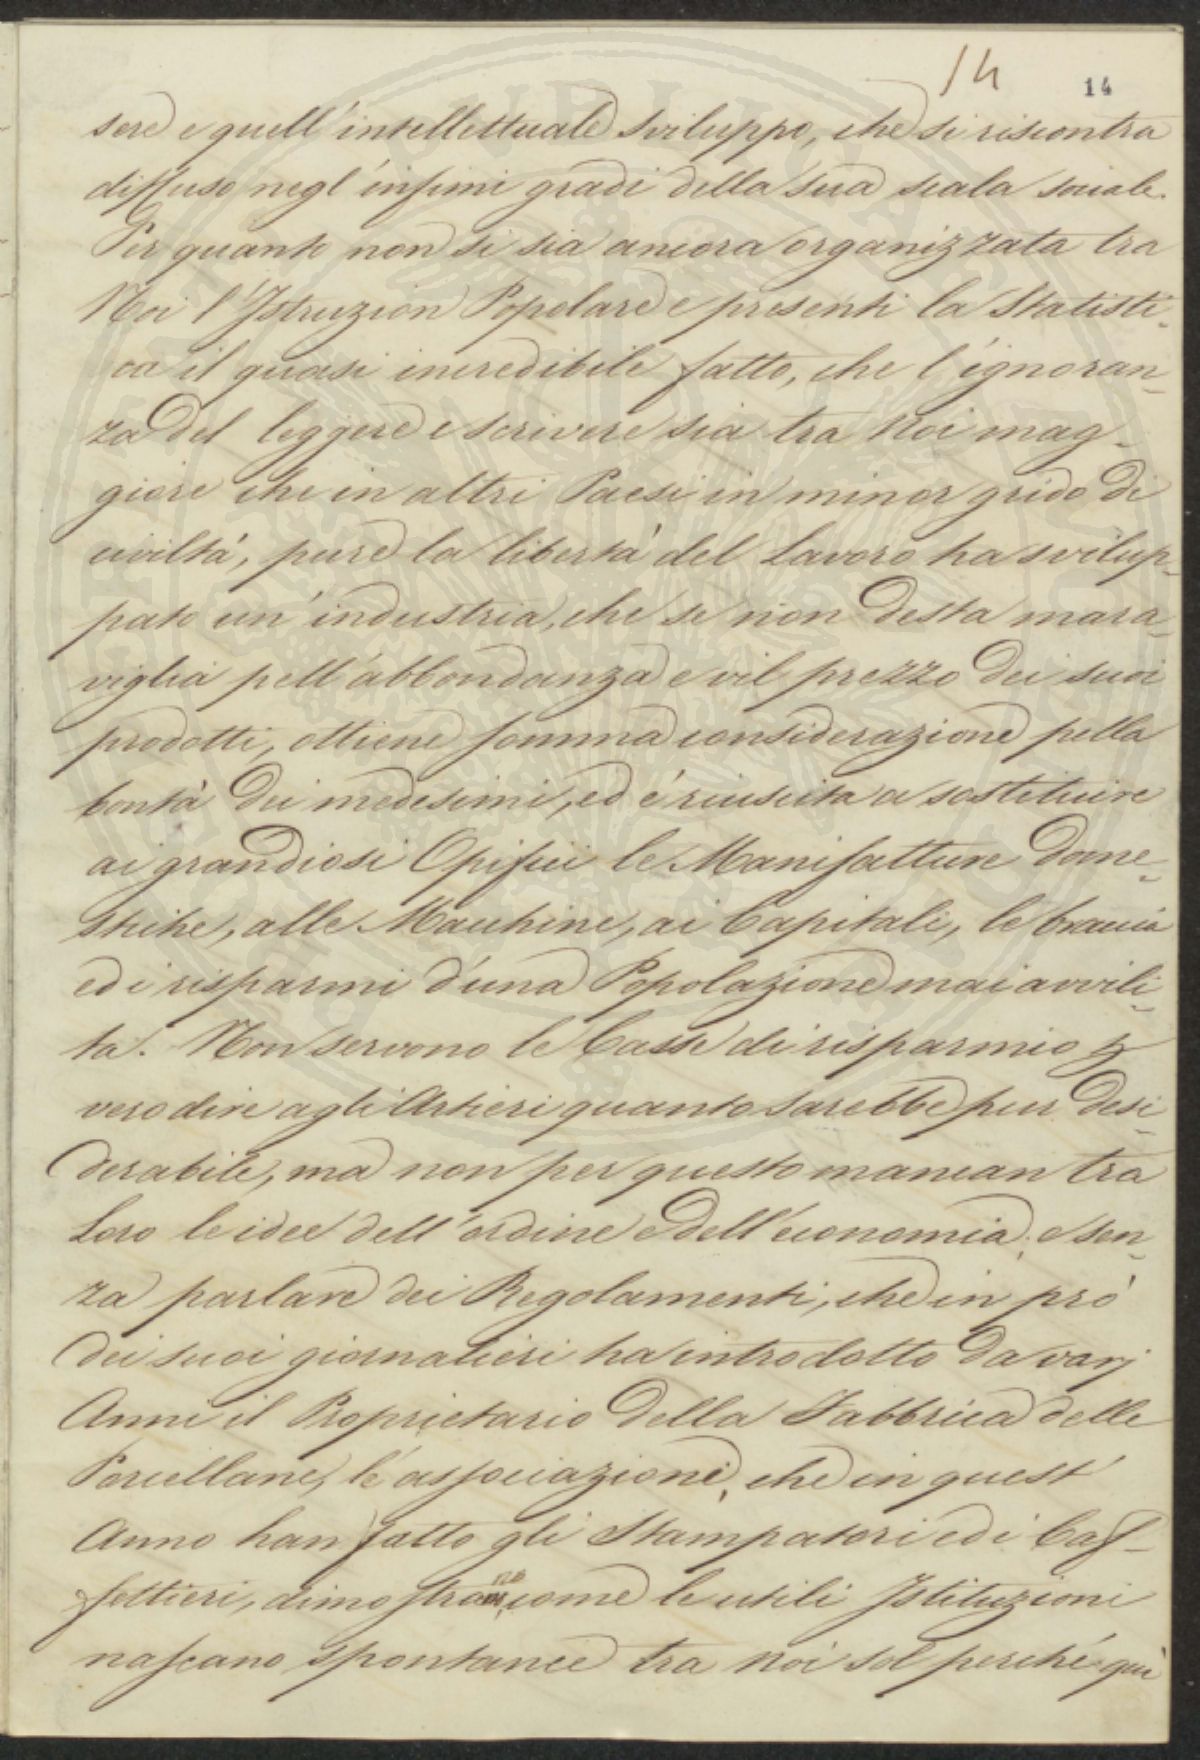 14 14
sere e quell'intellettuale sviluppo, che si riscontra
diffuso negl'infimi gradi della sua scala sociale.
Per quanto non si sia ancora organizzata tra
Noi l'Istruzion Popolare e presenti la Statisti-
ca il quasi incredibile fatto, che l'ignoran-
za del leggere e scrivere sia tra noi mag-
giore che in altri Paesi in minor grido di
civiltà, pure la libertà del Lavoro ha svilup-
pato un'industria, che se non desta mara-
viglia pell'abbondanza e vil prezzo dei suoi
prodotti, ottiene somma considerazione pella
bontà dei medesimi, ed é riuscita a sostituire
ai grandiosi Opifici le Manifatture dome-
stiche, alle Macchine, ai Capitali, le braccia
ed i risparmi d'una Popolazione mai avvili-
ta. Non servono le Casse di risparmio p
vero dire agli Artieri quanto sarebbe pur desi-
derabile, ma non per questo mancan tra
Loro le idee dell'ordine e dell'economia; e sen-
za parlare dei Regolamenti, che in prò
dei suoi giornalieri ha introdotto da varj
Anni il Proprietario della Fabbrica delle
Porcellane, le associazioni, che in quest'
Anno han fatto gli Stampatori ed i Caf-
fettieri, dimostrano come le utili Istituzioni
nascano spontanee tra noi sol perché qui